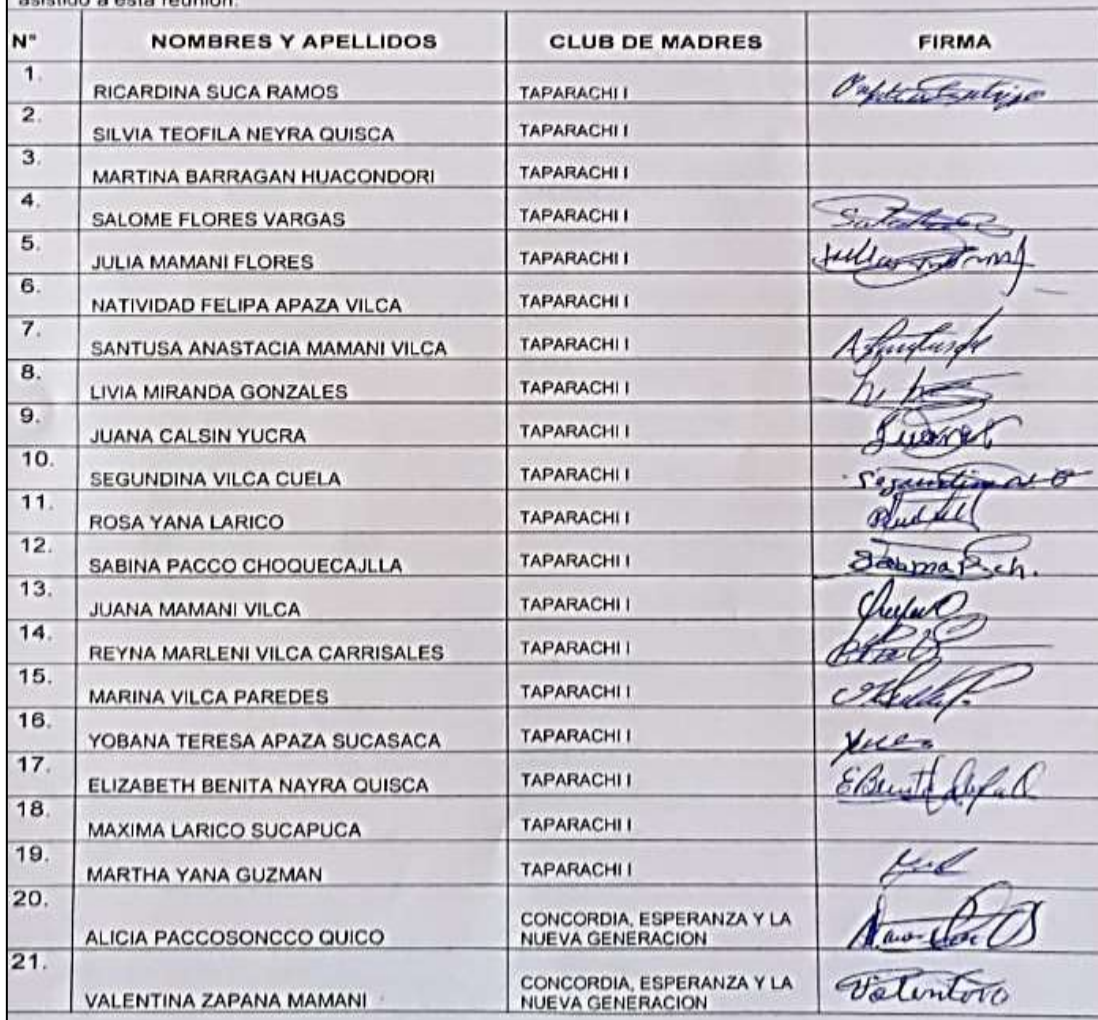 asistido a esta reunión.
N° NOMBRES Y APELLIDOS CLUB DE MADRES FIRMA
1. RICARDINA SUCA RAMOS TAPARACHI I
2. SILVIA TEOFILA NEYRA QUISCA TAPARACHI I
3. MARTINA BARRAGAN HUACONDORI TAPARACHI I
4. SALOME FLORES VARGAS TAPARACHI I
5. JULIA MAMANI FLORES TAPARACHI I
6. NATIVIDAD FELIPA APAZA VILCA TAPARACHI I
7. SANTUSA ANASTACIA MAMANI VILCA TAPARACHI I
8. LIVIA MIRANDA GONZALES TAPARACHI I
9. JUANA CALSIN YUCRA TAPARACHI I
10. SEGUNDINA VILCA CUELA TAPARACHI I
11. ROSA YANA LARICO TAPARACHI I
12. SABINA PACCO CHOQUECAJLLA TAPARACHI I
13. JUANA MAMANI VILCA TAPARACHI I
14. REYNA MARLENI VILCA CARRISALES TAPARACHI I
15. MARINA VILCA PAREDES TAPARACHI I
16. YOBANA TERESA APAZA SUCASACA TAPARACHI I
17. ELIZABETH BENITA NAYRA QUISCA TAPARACHI I
18. MAXIMA LARICO SUCAPUCA TAPARACHI I
19. MARTHA YANA GUZMAN TAPARACHI I
20. ALICIA PACCOSONCCO QUICO CONCORDIA, ESPERANZA Y LA
NUEVA GENERACION
21. VALENTINA ZAPANA MAMANI CONCORDIA, ESPERANZA Y LA
NUEVA GENERACION